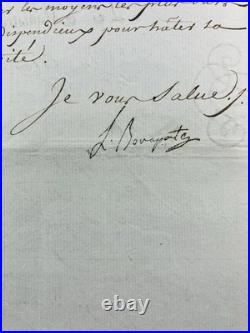 les moyens les plus
dispendieux pour hâter sa
ité.
Je vous Salue.
L. Bonaparte